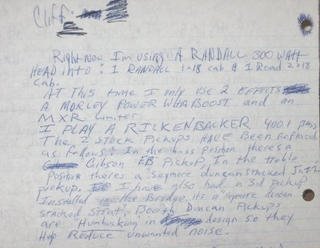 Cliff:
Right now I'm using A RANDALL 300 WATT
HEAD into: 1 RANDALL 1-18 cab & 1 Road 2-15
cab.
AT THis time I only use 2 EFFECTS
A MORLEY POWER WHA BOOST and an
MXR Limiter.
I PLAY A RICKENBACKER 4001 bass
THE 2 STOCK Pickups HAVE BEEN Replaced
as follows. In the bass Position there's a
Gibson EB Pickup, In the treble
Position there's a Seymore duncan stacked Jazz
pickup. I have also had a 3rd pickup
Installed the Bridge, its a Seymore duncan
stacked Strat. Both Duncan Pickups
are Humbucking in design so they
Help REDUCE unwanted noise.